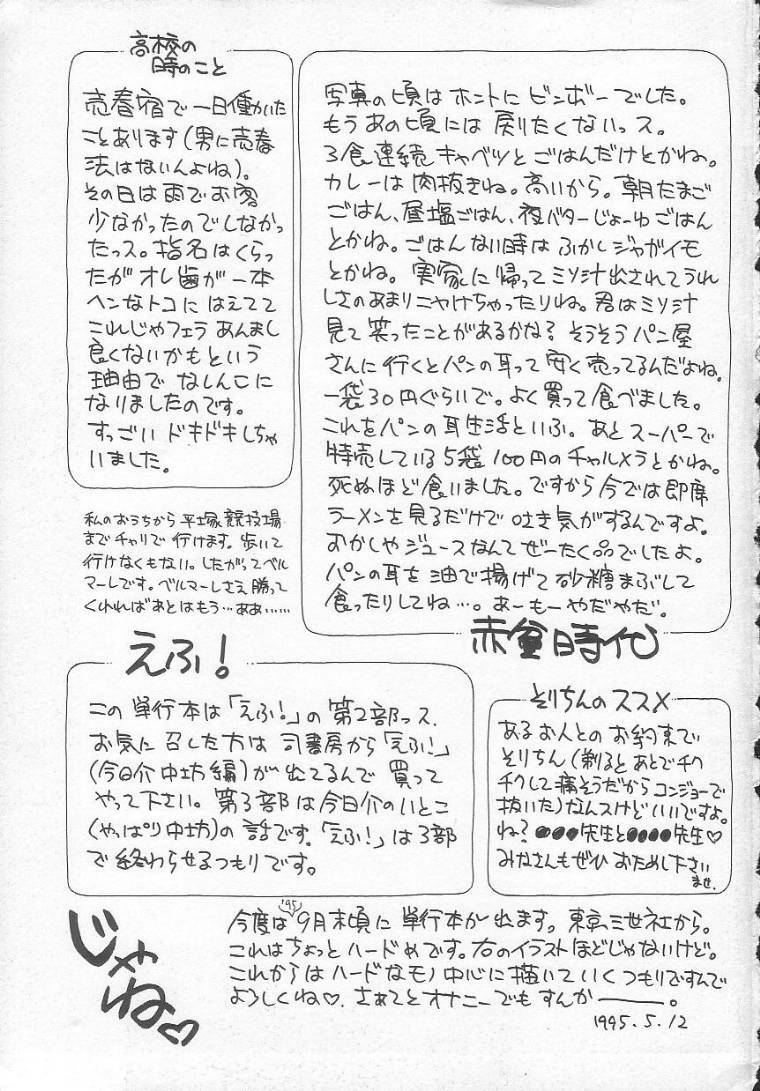 高校の
時のこと
売春宿で一日働いた
ことあります(男に売春
法はないんよね)。
その日は雨でお客
少なかったのでしなかっ
たっス。指名はくらっ
たがオレ歯が一本
ヘンなトコにはえてて
これじゃフェラあんまし
良くないかもという
理由でなしんこに
なりましたのです。
すっごいドキドキしちゃ
いました。
写真の頃はホントにビンボーでした。
もうあの頃には戻りたくないっス。
3食連続キャベツとごはんだけとかね。
カレーは肉抜きね。高いから。朝たまご
ごはん、昼塩ごはん、夜バターじょーゆごはん
とかね。ごはんない時はふかしジャガイモ
とかね。実家に帰ってミソ汁出されてうれ
しさのあまりニヤけちゃったりね。君はミソ汁
見て笑ったことがあるかな?そうそうパン屋
さんに行くとパンの耳って安く売ってるんだよね。
一袋30円ぐらいで。よく買って食べました。
これをパンの耳生活といふ。あとスーパーで
特売している5袋100円のチャルメラとかね。
死ぬほど食いました。ですから今では即席
ラーメンを見るだけで吐き気がするんですよ。
おかしやジュースなんてぜーたく品でしたよ。
パンの耳を油で揚げて砂糖まぶして
食ったりしてね…。あーもーやだやだ。
赤貧時代
私のおうちから平塚競技場
までチャリで行けます。歩いて
行けなくもない。したがってベル
マーレです。ベルマーレさえ勝って
くれればあとはもう…ああ……
えふ!
この単行本は「えふ!」の第2部っス。
お気に召した方は司書房から「えふ!」
(今日介中坊編)が出てるんで買って
やって下さい。第3部は今日介のいとこ
(やっぱり中坊)の話です。「えふ!」は3部
で終わらせるつもりです。
そりちんのススメ
あるお人とのお約束で
そりちん(剃るとあとでチク
チクして痛そうだからコンジョーで
抜いた)なんスけどいいですよ。
ね?●●●先生と●●●●先生♡
みなさんもぜひおためし下さい
ませ。
じゃ
ね♡
今度は'95 9月末頃に単行本が出ます。東京三世社から。
これはちょっとハードめです。右のイラストほどじゃないけど。
これからはハードなモノ中心に描いていくつもりですんで
よろしくね♡。さぁてとオナニーでもすんかー――。
1995.5.12